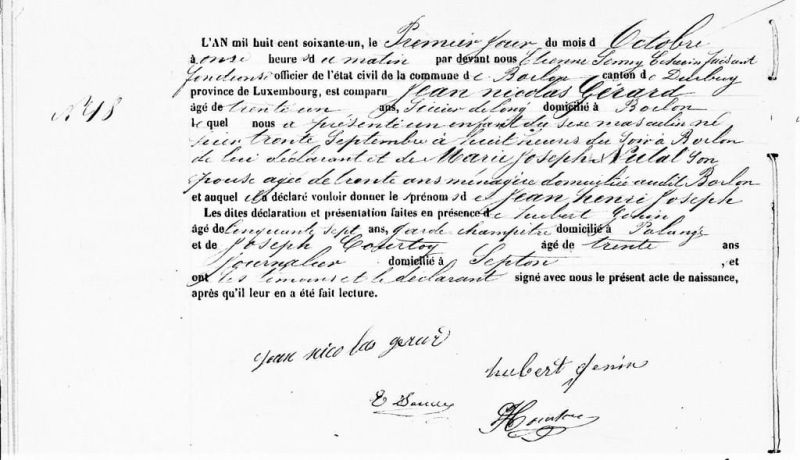 L'AN mil huit cent soixante-un, le Premier jour du mois d'Octobre
à onze heures du matin par devant nous Etienne Echevin faisant
fonctions officier de l'état civil de la commune de Borlon canton de Durbuy
province de Luxembourg, est comparu Jean Nicolas Gérard
Nº 18
âgé de trente un ans, Scieur de long domicilié à Borlon
lequel nous a présenté un enfant du sexe masculin né
hier trente Septembre à huit heures du soir à Borlon
de lui déclarant et de Marie Joseph son
épouse agée de trente ans ménagère domiciliée audit Borlon
et auquel il a déclaré vouloir donner le prénom de Jean henri Joseph
Les dites déclaration et présentation faites en présence de hubert
âgé de Cinquante sept ans, garde champêtre domicilié à Palange
et de Joseph Courtoy âgé de trente ans
journalier domicilié à Septon , et
ont les témoins et le déclarant signé avec nous le présent acte de naissance,
après qu'il leur en a été fait lecture.
jean nicolas gerard
hubert